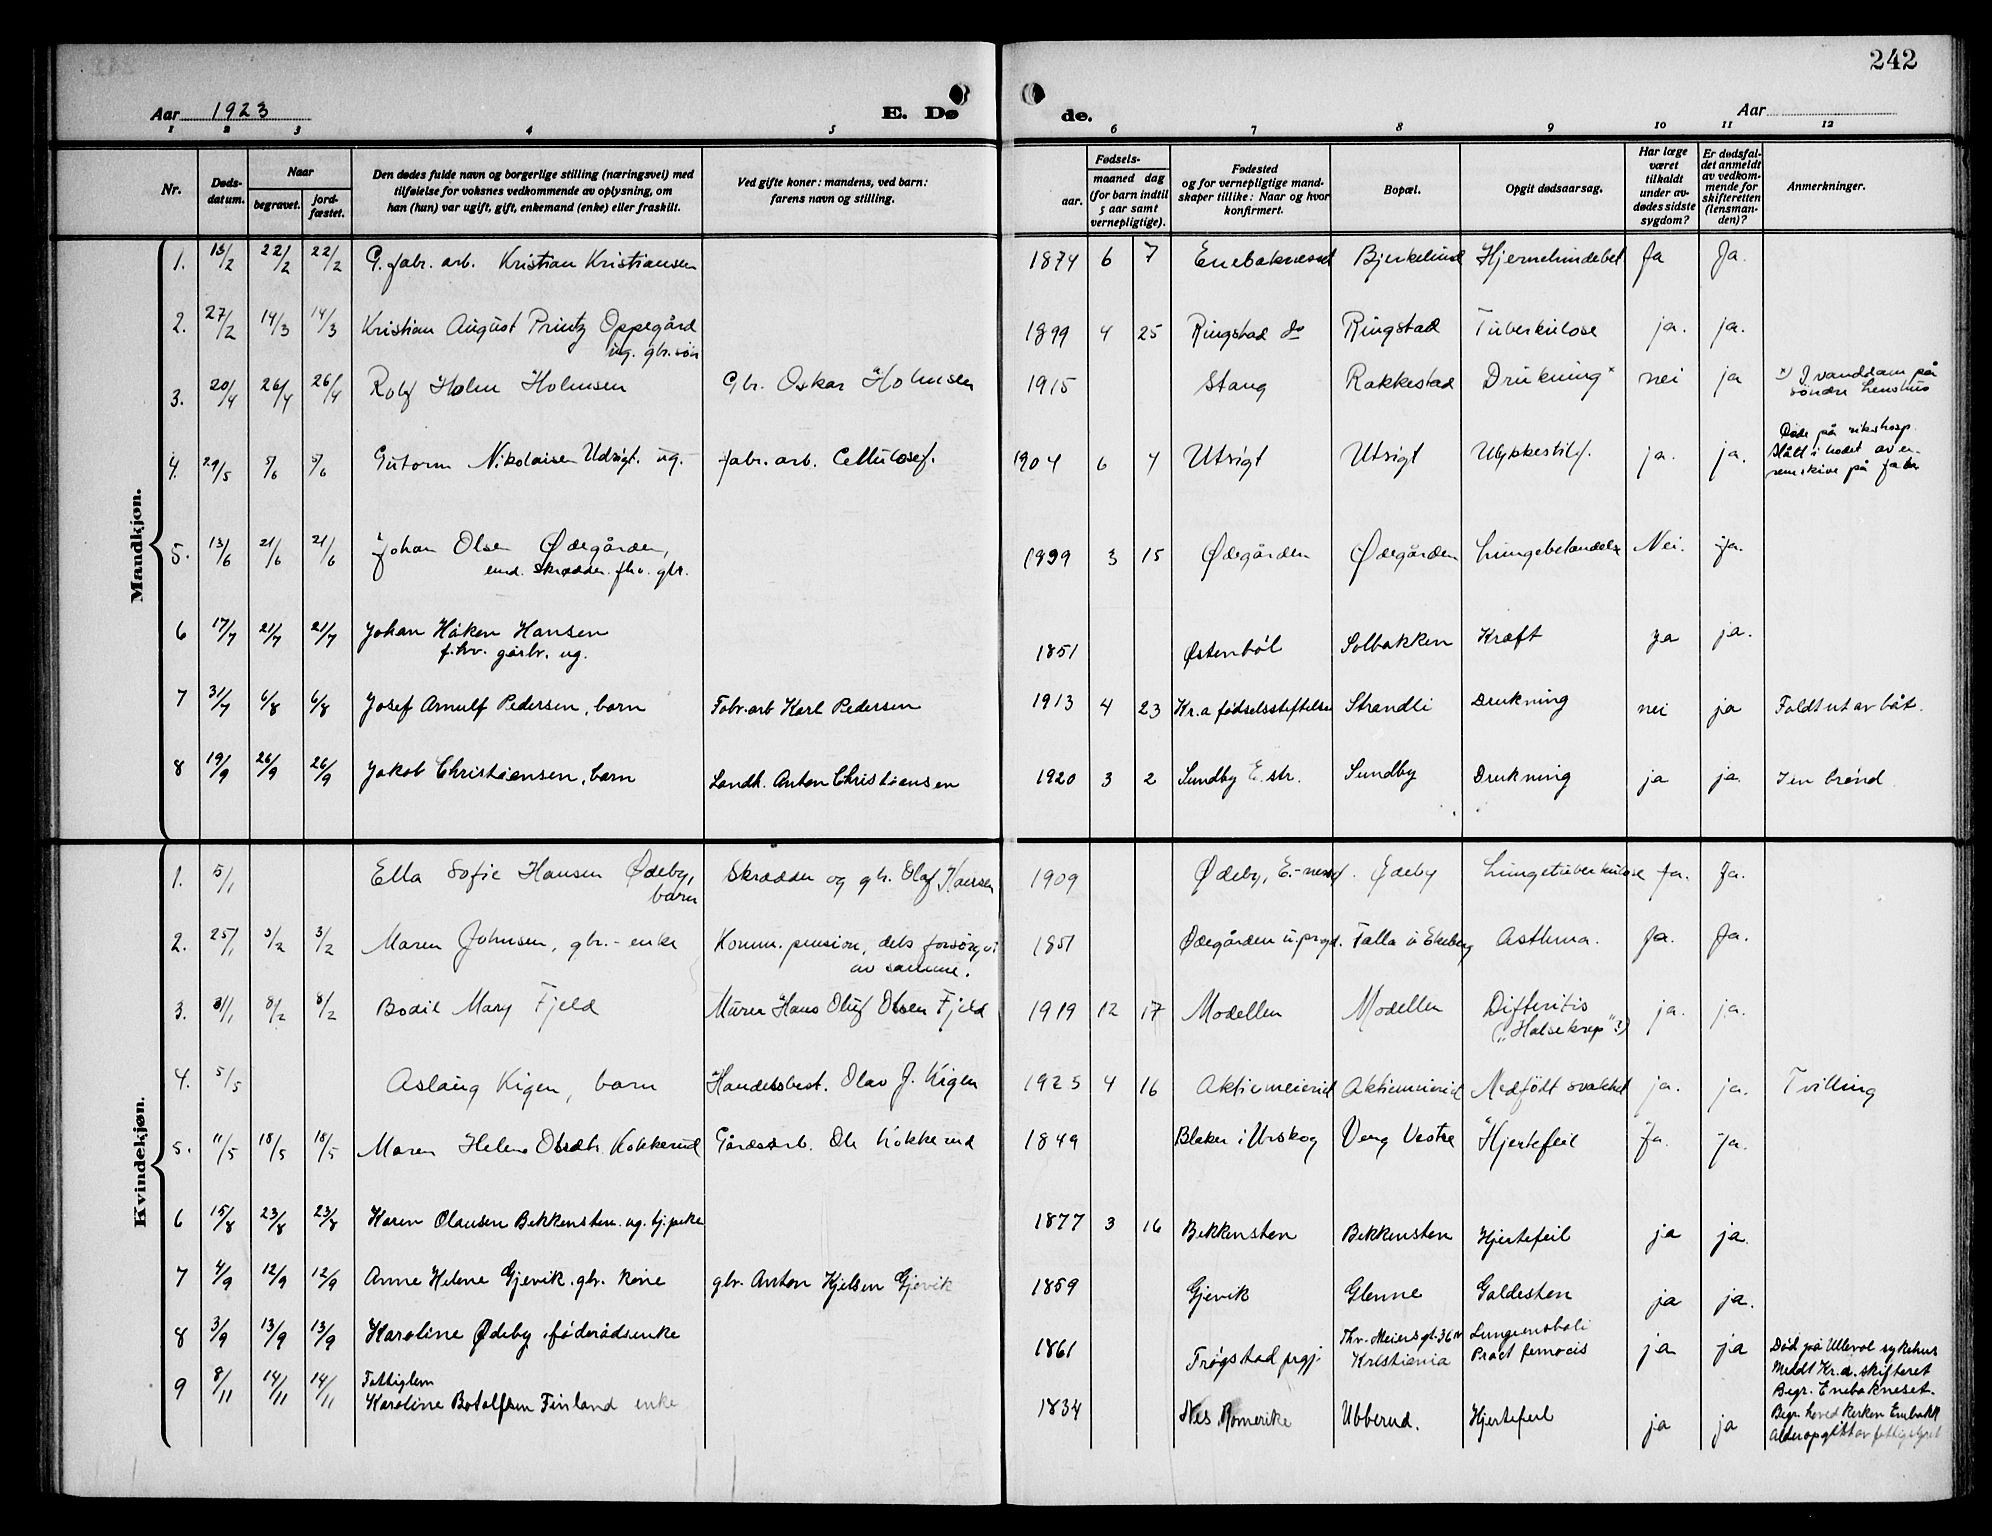 242
Aar 1923
E. Dø de.
Aar
1 2 3 4 5 6 7 8 9 10 11 12
Nr.
Døds-
datum.
Naar
begravet.
jord-
fæstet.
Den dødes fulde navn og borgerlige stilling (næringsvei) med
tilføielse for voksnes vedkommende av oplysning, om
han (hun) var ugift, gift, enkemand (enke) eller fraskilt.
Ved gifte koner: mandens, ved barn:
farens navn og stilling.
Fødsels-
aar.
maaned dag
(for barn indtil
5 aar samt
vernepligtige).
Fødested
og for vernepligtige mand-
skaper tillike: Naar og hvor
konfirmert.
Bopæl.
Opgit dødsaarsag.
Har læge
været
tilkaldt
under av-
dødes sidste
sygdom?
Er dødsfal-
det anmeldt
av vedkom-
mende for
skifteretten
(lensman-
den)?
Anmerkninger.
Mandkjøn.
1. 15/2 22/2 22/2 G. fabr. arb. Kristian Kristiansen 1874 6 7 Enebaknesset Bjerkelund Ja Ja.
2. 27/2 14/3 14/3 Kristian August Printz Oppegård 1899 4 25 Ringstad Ringstad Tuberkulose ja. ja.
ug. gbr. søn
3. 20/4 26/4 26/4 Rolf Holm Holmsen Gbr. Oskar Holmsen 1915 Stang Rakkestad Drukning x nei ja x) I vanddam på
søndre Lenshus
4. 29/5 5/6 5/6 Gutorm Nikolaisen Udsigt. ug. fabr. arb. Cellulosef. 1904 6 4 Utsigt Utsigt Ulykkestilf. ja. ja. Døde på rikshosp.
Slått i hodet av en
remskive på
5. 13/6 21/6 21/6 Johan Olsen Ødegården, 3 15 Ødegården Ødegården Lungebetændelse Nei. Ja.
emd. skrædder. fhv. gbr.
6 17/7 21/7 21/7 Johan Håken Hansen 1851 Østenbøl Solbakken Kræft ja ja.
f.hv. gårbr. ug.
7 31/7 6/8 6/8 Josef Arnulf Pedersen, barn Fabr.arb Karl Pedersen 1913 4 23 Kr.a fødselsstiftelse Strandli Drukning nei ja Faldt ut av båt.
8 19/9 26/9 26/9 Jakob Christiansen, barn Landh. Anton Christiansen 1920 3 2 Sundby E. str. Sundby Drukning ja ja. I en brønd
Kvindekjøn.
1. 5/1 Ella Sofie Hansen Ødeby, Skrædder og gbr. Olaf Hansen 1909 Ødeby, Ødeby Lungetuberkulose Ja. Ja.
barn
2. 25/1 3/2 3/2 Maren Johnsen, gbr.- enke Komm. pension, dels forsørg. 1851 Ødegården Falla u Ekeberg Asthma. Ja. Ja.
av samme.
3. 31/1 8/2 8/2 Bodil Mary Fjeld Murer Hans Oluf Olsen Fjeld 1919 12 17 Modellen Modellen Difteritis ja. ja.
4. 5/5 Aslaug Kigen, barn Handelsbest. Olav J. Kigen 1923 4 16 Aktiemeieriet Aktiemeieriet Medfødt svakhet ja. ja. Tvilling
5. 11/5 18/5 18/5 Maren Helene Olsdtr. Kokkerud Gårdsarb. Ole Kokkerud 1849 Blaker i Urskog Veng Vestre Hjertefeil Ja. Ja.
6 15/8 23/8 23/8 Karen Olausen Bekkensten. ug. tj.pike 1877 3 16 Bekkensten Bekkensten Hjertefeil ja ja.
7 4/9 12/9 12/9 Anne Helene Gjevik. gbr. kone gbr. Anton Kjelsen Gjevik 1859 Gjevik Glenne Galdesten ja ja.
8 3/9 13/9 13/9 Karoline Ødeby, føderådsenke 1861 Trøgstad prgj. Thv. Meiersgt. 36 Lungeemboli ja ja Død på Ulleval sykehus
Kristiania Meldt Kr.a. skifteret
Begr. Enebakneset.
9 8/11 14/11 14/11 Fattiglem
Karoline Botolfsen Finland enke 1834 Nes Romerike Ubberud. Hjertefeil ja ja Begr. hovedkirken Enebakk
Alder opgitt av fattigstyret